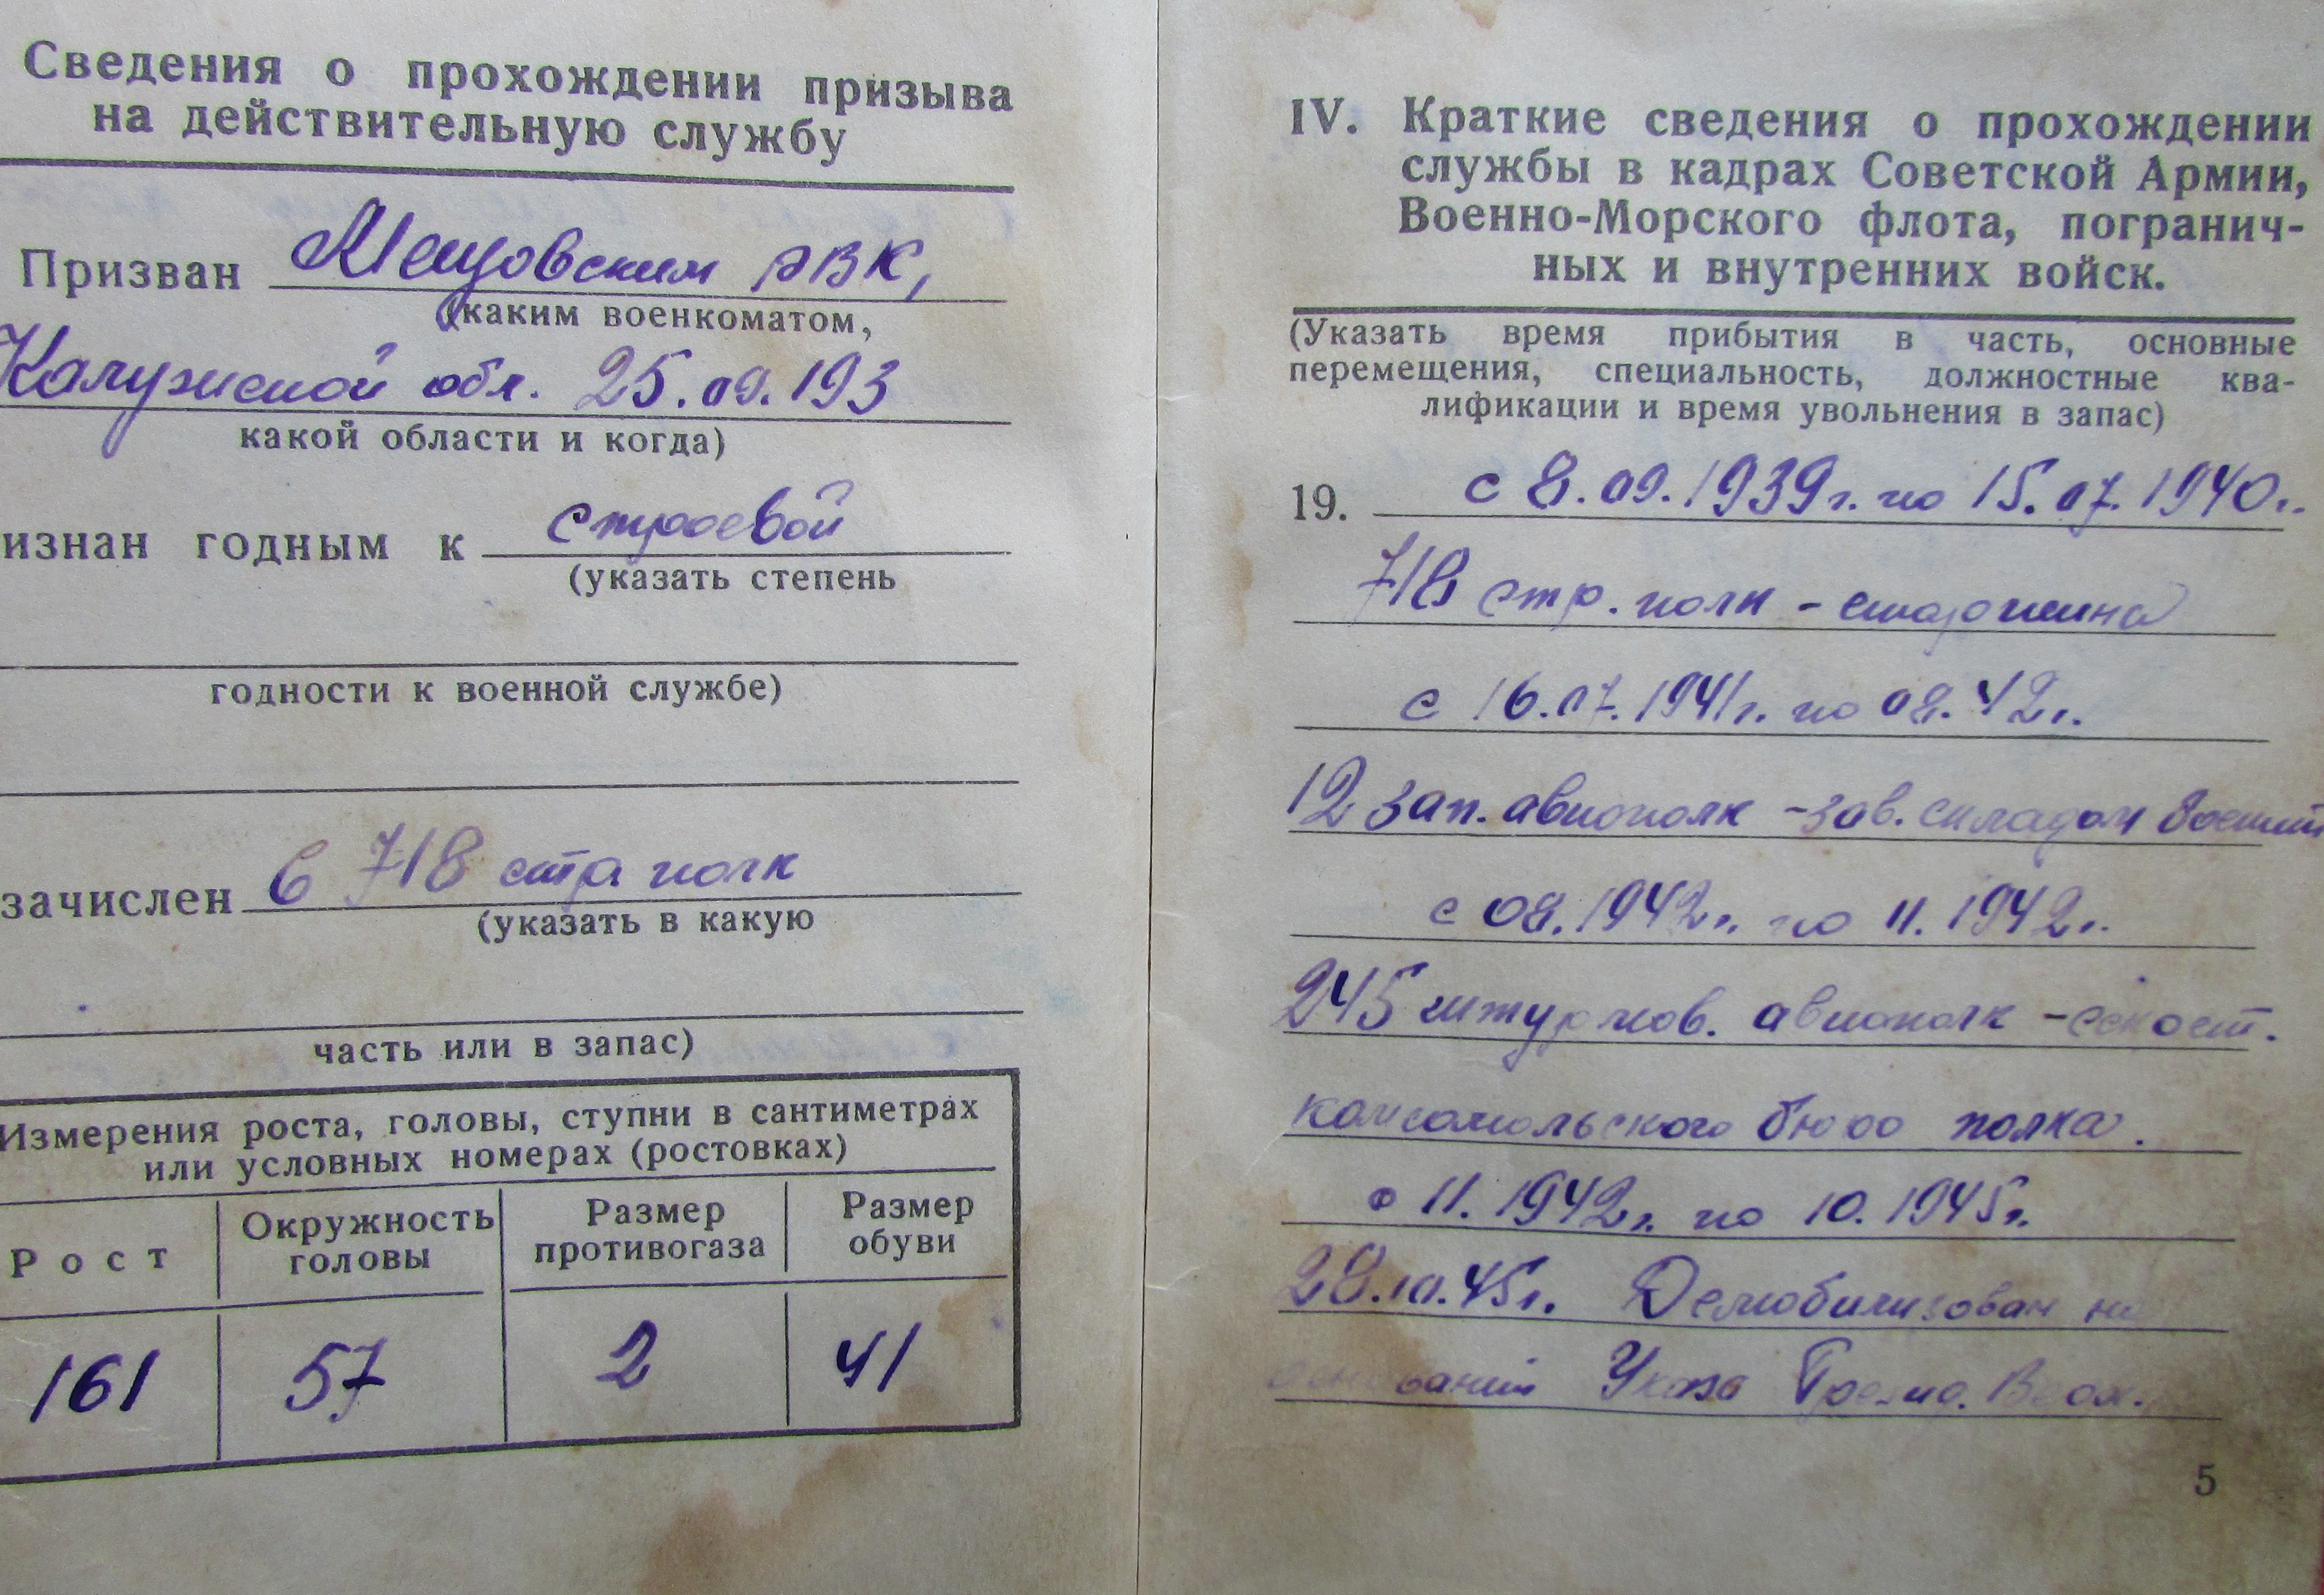 Сведения о прохождении призыва
на действительную службу
Призван Мещовским РВК,
(каким военкоматом,
Калужской обл. 25.09.193
какой области и когда)
изнан годным к строевой
(указать степень
годности к военной службе)
зачислен в 718 стр полк
(указать в какую
часть или в запас)
Измерения роста, головы, ступни в сантиметрах
или условных номерах (ростовках)
Рост
Окружность
головы
Размер
противогаза
Размер
обуви
161 57 2 41
IV. Краткие сведения о прохождении
службы в кадрах Советской Армии,
Военно-Морского флота, погранич-
ных и внутренних войск.
(Указать время прибытия в часть, основные
перемещения, специальность, должностные ква-
лификации и время увольнения в запас)
19. с 8.09.1939г. по 15.07.1940г.
718 стр. полк - старшина
с 16.07.1941г. по 08.42г.
12 зап. авиополк - зав. складом
с 08.1942г. по 11.1942г.
245 штурмов. авиополк -
комсомольского бюро полка.
с 11.1942г. по 10.1945г.
28.10.45г. Демобилизован на
основании Указа Презид. Верх.
5